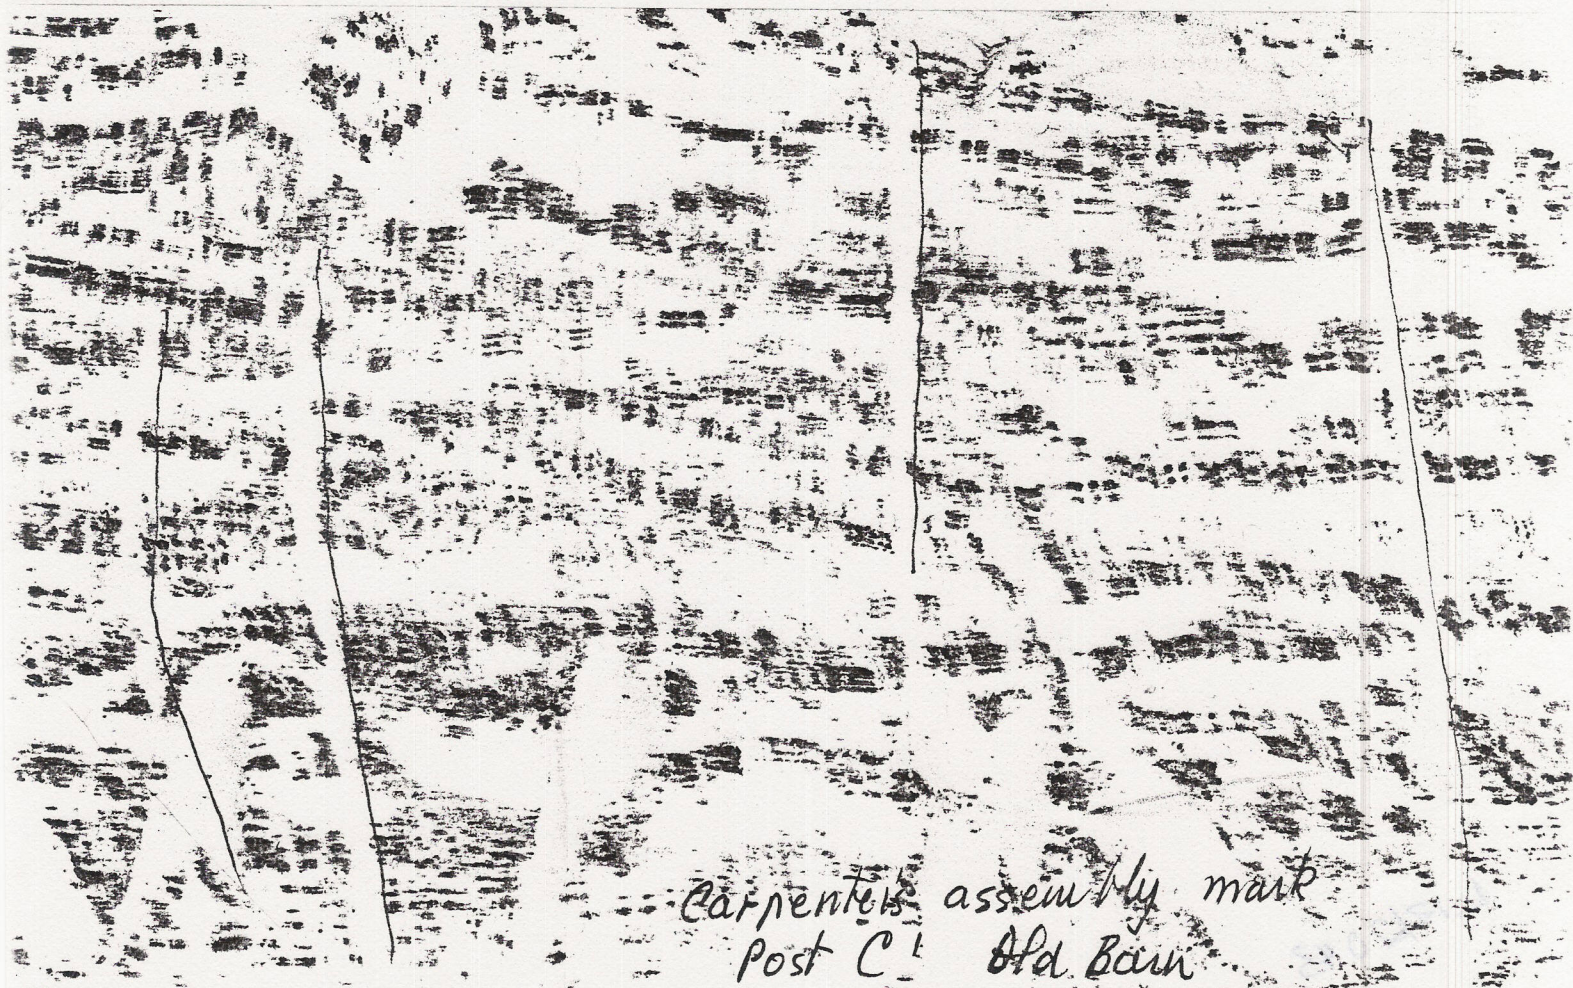 Carpenter's assembly mark
Post C' Old Barn